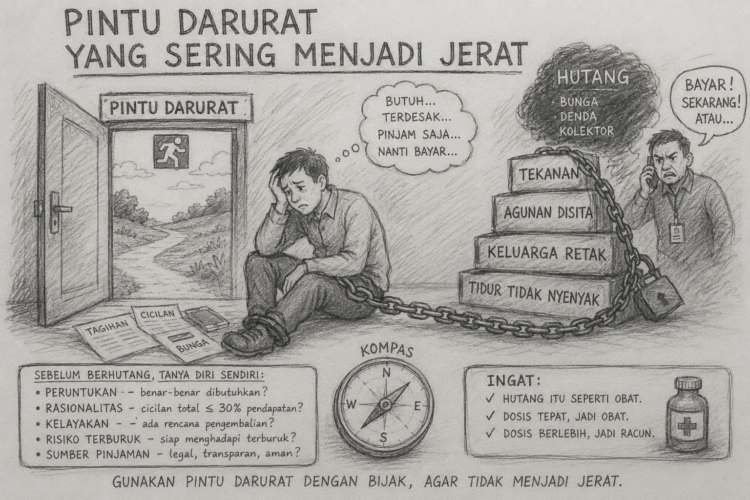 PINTU DARURAT
YANG SERING MENJADI JERAT
PINTU DARURAT
BUTUH...
TERDESAK...
PINJAM SAJA...
NANTI BAYAR...
HUTANG
· BUNGA
· DENDA
KOLEKTOR
BAYAR!
SEKARANG!
ATAU...
TEKANAN
AGUNAN DISITA
KELUARGA RETAK
TIDUR TIDAK NYENYAK
TAGIHAN
CICILAN
BUNGA
SEBELUM BERHUTANG, TANYA DIRI SENDIRI:
• PERUNTUKAN -- benar-benar dibutuhkan?
• RASIONALITAS - cicilan total ≤ 30% pendapatan?
• KELAYAKAN -- ada rencana pengembalian?
• RISIKO TERBURUK - siap menghadapi terburuk?
• SUMBER PINJAMAN - legal, transparan, aman?
KOMPAS
N
W E
S
INGAT:
✓ HUTANG ITU SEPERTI OBAT.
✓ DOSIS TEPAT, JADI OBAT.
✓ DOSIS BERLEBIH, JADI RACUN.
GUNAKAN PINTU DARURAT DENGAN BIJAK, AGAR TIDAK MENJADI JERAT.